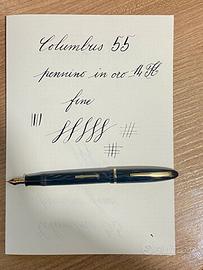 Columbus 55
pennino in oro 14 K
fine